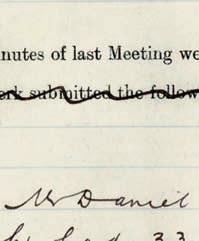 nutes of last Meeting we
erk submitted the follow
Mr Daniel